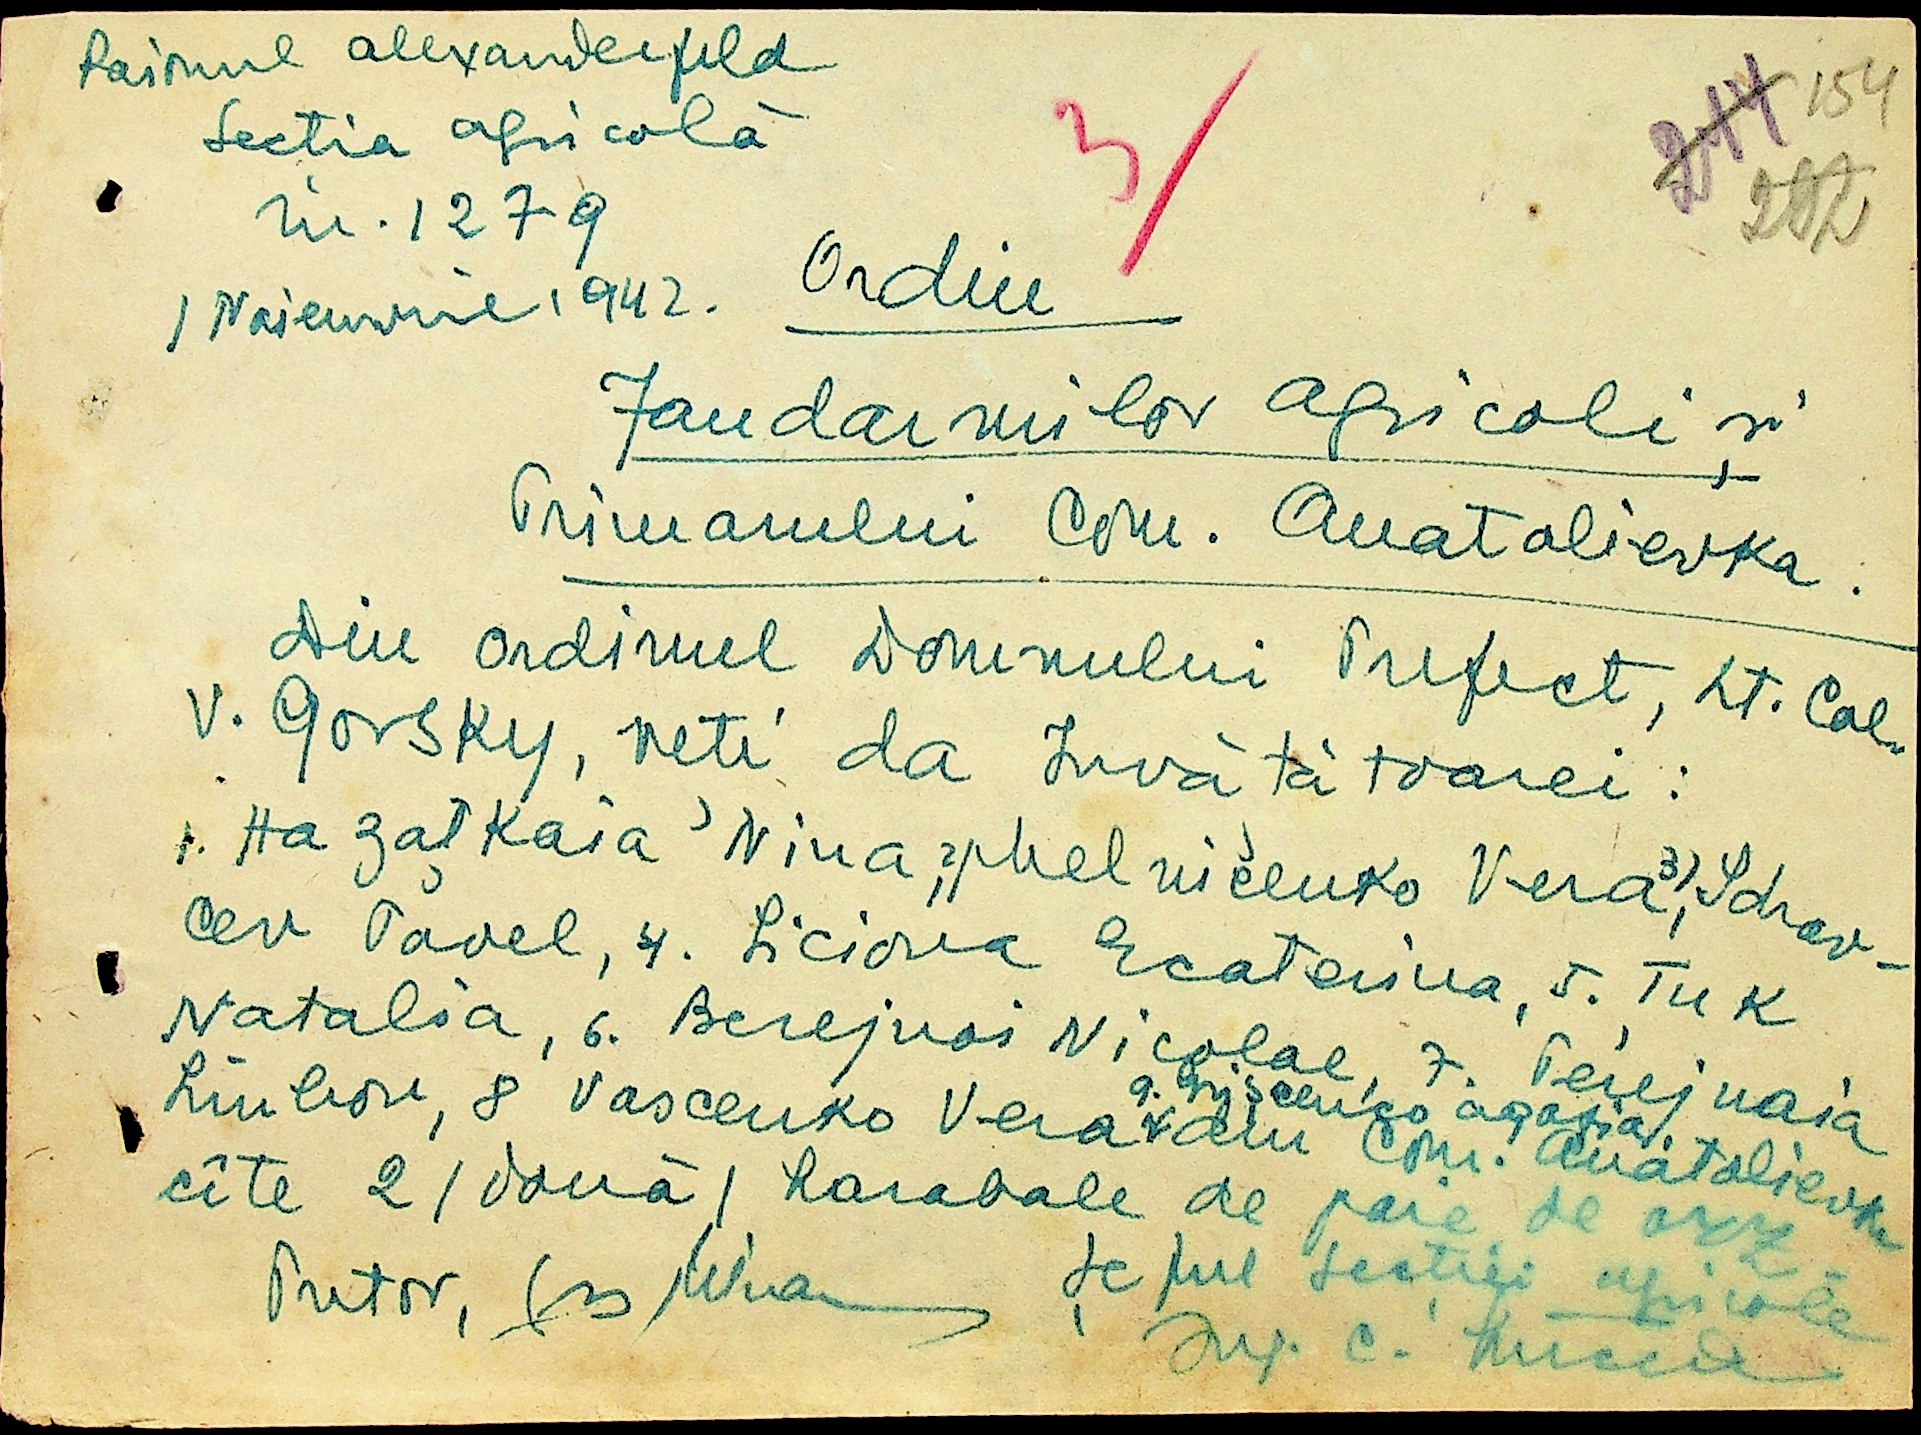 Raionul Alexanderfeld
Secția agricolă
Nr. 1279
1 Noiembrie 1942.
3/
244 154
Ordin
Jandarmilor agricoli și
Primarului Com. Anatolievka.
Din ordinul Domnului Prefect, Lt. Col.
V. Gorsky, veți da Învățătoarei:
1. Hazațkaia Nina, 2) Melnicenko Vera, 3) Sdrav-
cev Pavel, 4. Liciova Ecaterina, 5. Țuk
Natalia, 6. Berejnoi Nicolae, 7. Perejnaia
Liubov, 8 Vascenko Vera
din Com. Anatolievka
cîte 2 /două/ harabale de paie de orz.
Pretor,
Șeful Secției agricole
Ing. C.